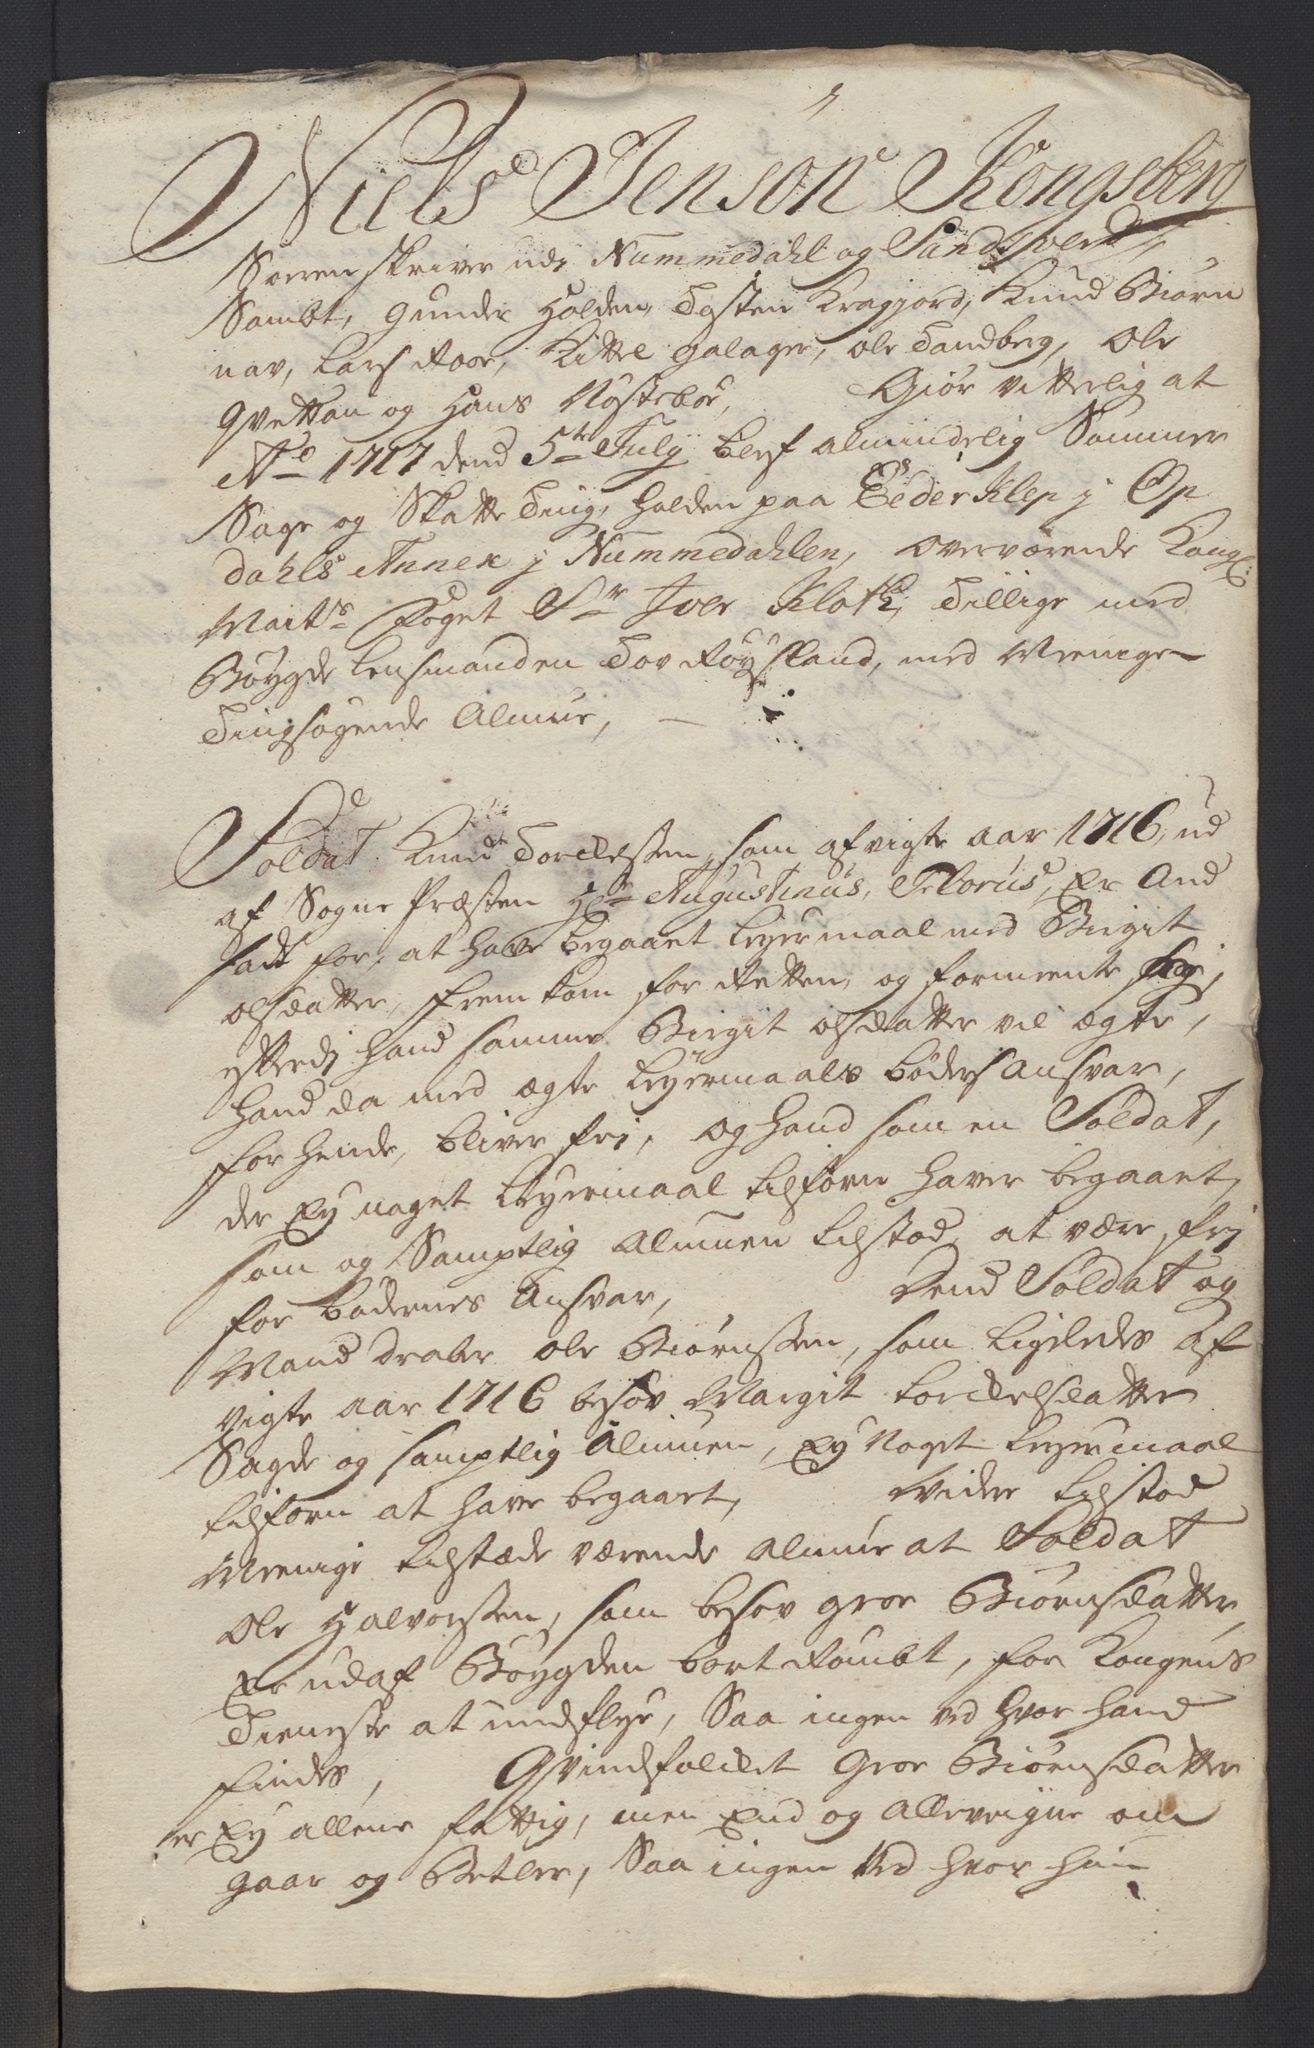 Niels Jensön Kongsberg
Sorrenskriver udj Nummedahl og Sandsverd,
Sambt, Gunder Holden, Tosten Kragjord, Knud Biørn
nav, Lars Roe, Kittel Galager, Ole Sandberg, Ole
Qvettan og Hans Nøstebøe, Giör vitterlig at
Ao 1717 dend 5te July blef almindelig Sommer
Sage og Skatte Ting, holden paa Tederklep j Op
dahls Annex j Nummedahlen, overværende Kongl:
Maits Foget Sr Iver Kloth, Tillige med
Böygde Lensmanden Tov Röysland, med Menige
Tingsøgende Almue,
Soldat Knud Tordelssen, som afvigte aar 1716, ud
af Sogne Præsten Hr Augustinus, Telorus, er And
sadt for, at have begaaet leyermaal med Birgit
olsdatter, frem kom for Retten, og formeente sig,
efterdj hand samme Birgit olsdatter vil ægte,
hand da med ægte leyermaals böders Ansvar,
for hende, bliver frj, og hand som en Soldat,
der ey noget leyermaal tilforn haver begaaet,
som og Samptlig Almuen tilstod, at være frj
for bødernes Ansvar, Dend Soldat og
Mand draber Ole Biørnssen, som ligeledes Af
vigte aar 1716 besov Margit tordelsdatter
Sagde og samptlig Almuen, ey Noget leyermaal
tilforn at have begaaet, Videre tilstod
Menige tilstæde værende Almue at Soldat
Ole Halvorssen, som besov Groe Biørnsdatter
er udaf Böygden bort Römbt, for Kongens
Tieneste at undflye, Saa ingen ved hvor hand
findes, Qvindfolcket Groe Biørnsdatter
er ey allene fattig, men End og Allevegne om
gaar og Betler, Saa ingen Ved hvor hun